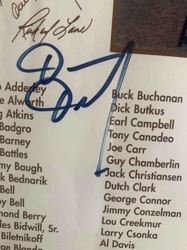 Adderley
e Alworth
g Atkins
Badgro
Barney
Battles
my Baugh
k Bednarik
Bell
y Bell
mond Berry
les Bidwill, Sr.
Biletnikoff
Buck Buchanan
Dick Butkus
Earl Campbell
Tony Canadeo
Joe Carr
Guy Chamberlin
Jack Christiansen
Dutch Clark
George Connor
Jimmy Conzelman
Lou Creekmur
Larry Csonka
Al Davis